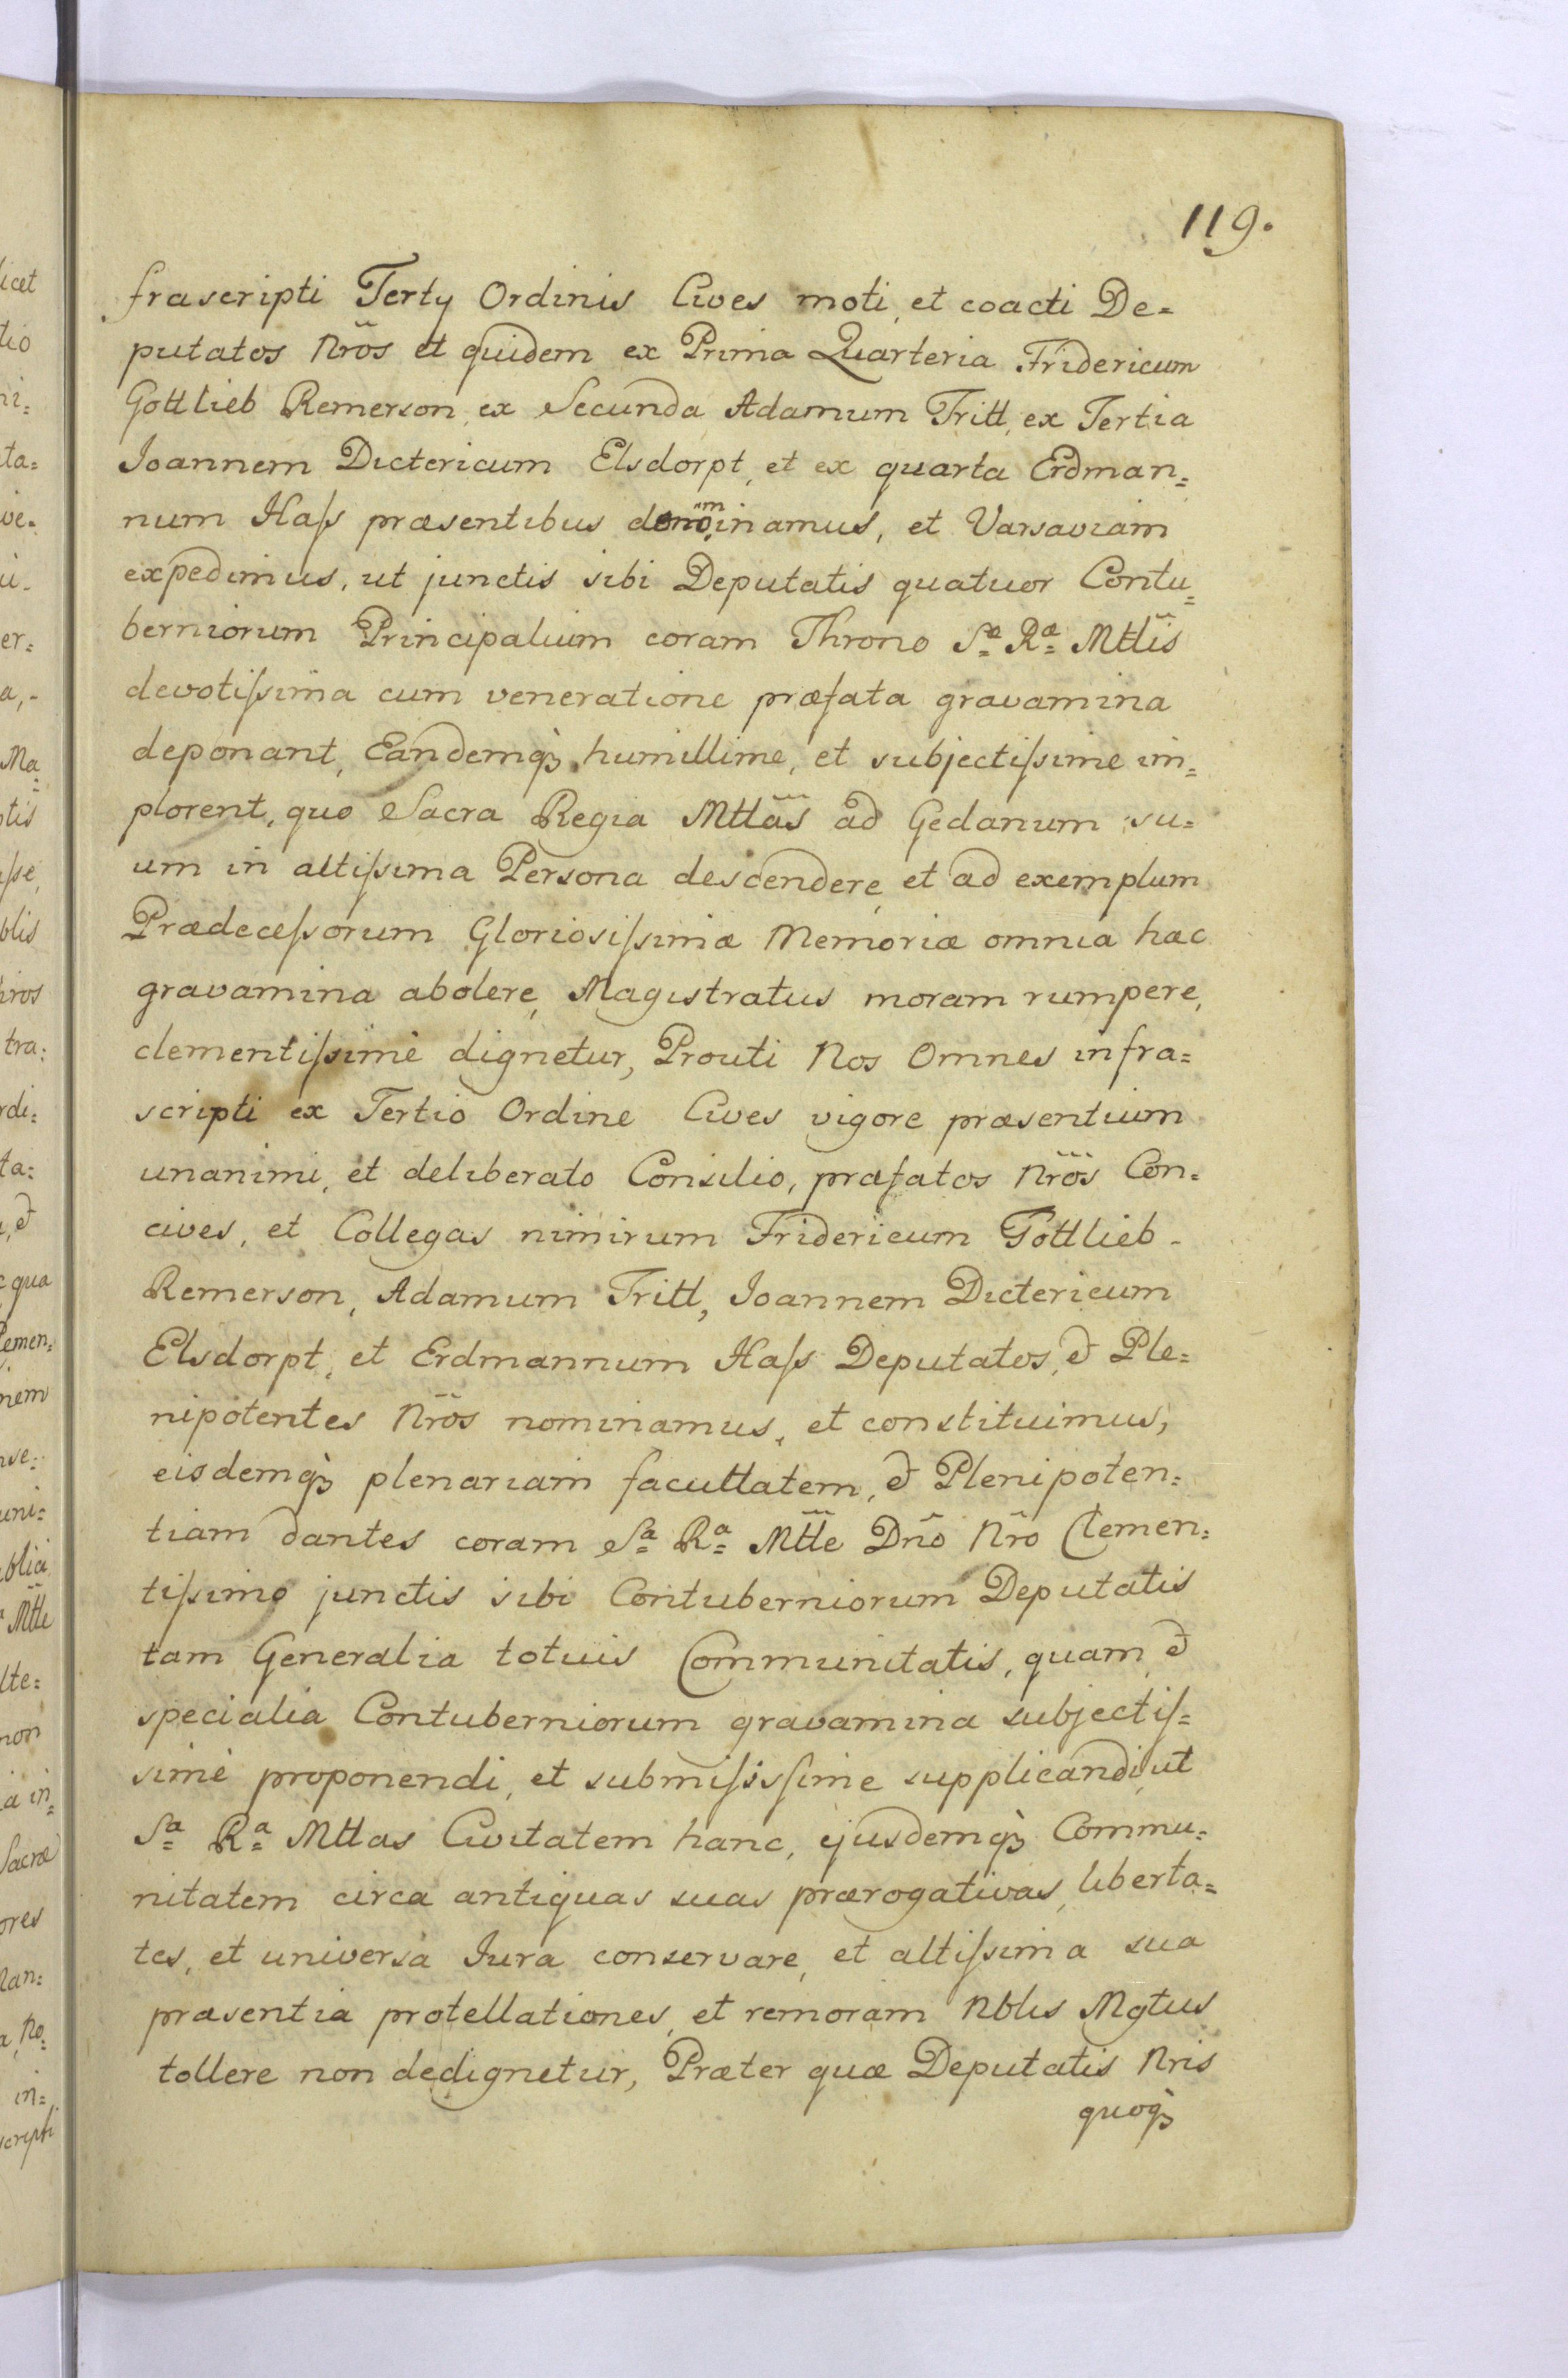 119.
frascripti Tertÿ Ordinis Cives moti, et coacti De=
putatos Nr̃os et quidem ex Prima Quarteria Fridericum
Gottlieb Remerson, ex Secunda Adamum Tritt, ex Tertia
Joannem Dictericum Elsdorpt, et ex quarta Erdman=
num Haſs præsentibus denominamus, et Varsaviam
expedimus, ut junctis sibi Deputatis quatuor Contu=
berniorum Principalium coram Throno Sæ Ræ Mttis
devotiſsima cum veneratione præfata gravamina
deponant, Eandemqꝫ humillime, et subjectiſsime im=
plorent, quo Sacra Regia Mttas ad Gedanum su=
um in altiſsima Persona descendere, et ad exemplum
Prædeceſsorum Gloriosiſsimæ Memoriæ omnia hæc
gravamina abolere, Magistratus moram rumpere,
clementiſsime dignetur, Prouti Nos Omnes infra=
scripti ex Tertio Ordine Cives vigore præsentium
unanimi, et deliberato Consilio, præfatos Nr̃os Con=
cives, et Collegas nimirum Fridericum Gottlieb-
Remerson, Adamum Tritt, Joannem Dictericum
Elsdorpt, et Erdmannum Haſs Deputatos, & Ple=
nipotentes Nr̃os nominamus, et constituimus,
eisdemqꝫ plenariam facultatem, & Plenipoten=
tiam dantes coram Sa Ra Mtte Dño Nr̃o Clemen=
tiſsimo junctis sibi Contuberniorum Deputatis
tam Generalia totius Communitatis, quam &
specialia Contuberniorum gravamina subjectiſ=
sime proponendi, et submiſsiſsime supplicandi, ut
Sa Ra Mttas Civitatem hanc, ejusdemqꝫ Commu=
nitatem circa antiquas suas prærogativas, liberta=
tes, et universa Jura conservare, et altiſsima sua
præsentia protellationes, et remoram Nblis Mgtus
tollere non dedignetur, Præter quæ Deputatis Nris
quoqꝫ